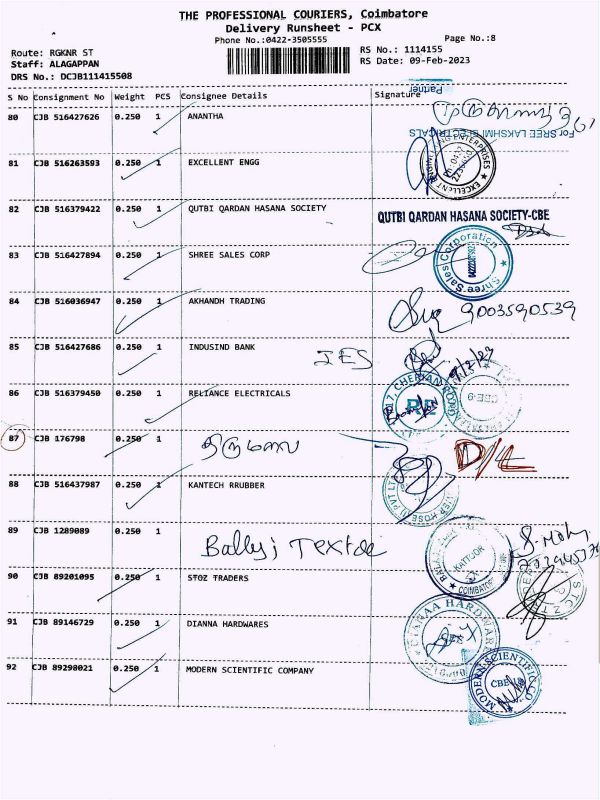 THE PROFESSIONAL COURIERS, Coimbatore
Delivery Runsheet - PCX
Phone No.:0422-3505555
Page No.:8
Route: RGKNR ST
RS No.: 1114155
Staff: ALAGAPPAN
RS Date: 09-Feb-2023
DRS No.: DCJB111415508
Partner
S No Consignment No Weight PCS Consignee Details Signature
80 CJB 516427626 0.250 1 ANANTHA
For SREE LAKSHMI ELECTRICALS
81 CJB 516263593 0.250 1 EXCELLENT ENGG
82 CJB 516379422 0.250 1 QUTBI QARDAN HASANA SOCIETY
QUTBI QARDAN HASANA SOCIETY-CBE
83 CJB 516427894 0.250 1 SHREE SALES CORP
Shree Sales Corporation
84 CJB 516036947 0.250 1 AKHANDH TRADING
9003590539
85 CJB 516427686 0.250 1 INDUSIND BANK
IES
86 CJB 516379450 0.250 1 RELIANCE ELECTRICALS
RE
CBE-9
87 CJB 176798 0.250 1 திருமலை
D/L
88 CJB 516437987 0.250 1 KANTECH RRUBBER
89 CJB 1289089 0.250 1
KATTOOR
COIMBATORE
90 CJB 89201095 0.250 1 STOZ TRADERS
91 CJB 89146729 0.250 1 DIANNA HARDWARES
92 CJB 89298021 0.250 1 MODERN SCIENTIFIC COMPANY
MODERN SCIENTIFIC CO